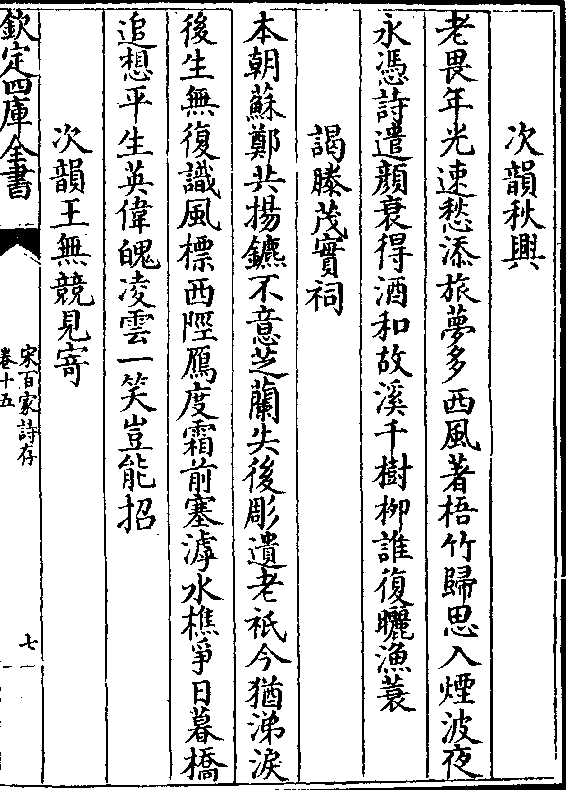 次韻秋興
老畏年光速愁添旅夢多西風著梧竹歸思入煙波夜
永憑詩遣顔衰得酒和故溪千樹栁誰復曬漁蓑
謁滕茂實祠
本朝蘇鄭共揚鑣不意芝蘭失後彫遺老祇今猶涕淚
後生無復識風標西陘鴈度霜前塞滹水樵爭日暮橋
追想平生英偉魄凌雲一笑豈能招
次韻王無競見寄
欽定四庫全書
宋百家詩存
卷十五
七